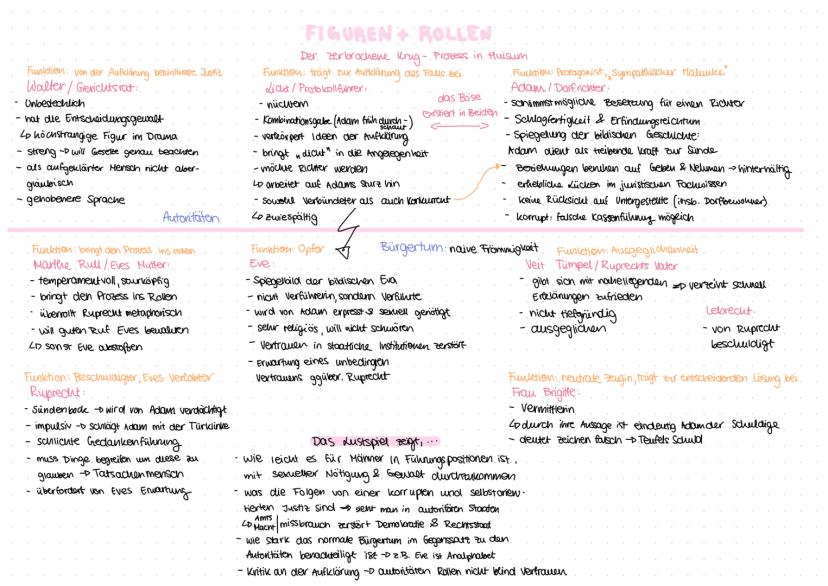 FIGUREN + ROLLEN
Der zerbrochene Krug - Prozess in Huisum
Funktion: von der Aufklärung beeinflusste Justiz
Walter / Gerichtsrat:
- Unbestechlich
- hat die Entscheidungsgewalt
↳ höchstrangige Figur im Drama
- streng → will Gesetze genau beachten
- als aufgeklärter Mensch nicht aber-
gläubisch
- gehobenere Sprache
Funktion: trägt zur Aufklärung des Falls bei
Licht / Protokollführer:
- nüchtern
- Kombinationsgabe (Adam früh durch-
schaut)
- verkörpert Ideen der Aufklärung
- bringt "Licht" in die Angelegenheit
- möchte Richter werden
↳ arbeitet auf Adams Sturz hin
- sowohl Verbündeter als auch Konkurrent
↳ zwiespältig
das Böse
existiert in Beiden
Funktion: Protagonist, "sympathischer Halunke"
Adam / Dorfrichter:
- schlimmstmögliche Besetzung für einen Richter
- Schlagfertigkeit & Erfindungsreichtum
- Spiegelung der biblischen Geschichte:
Adam dient als treibende Kraft zur Sünde
- Beziehungen beruhen auf Geben & Nehmen → hinterhältig
- erhebliche Lücken im juristischen Fachwissen
- keine Rücksicht auf Untergestellte (insb. Dorfbewohner)
- korrupt: falsche Kassenführung möglich
Autoritäten
Bürgertum: naive Frömmigkeit
Funktion: bringt den Prozess ins rollen
Marthe Rull / Eves Mutter:
- temperamentvoll, sturköpfig
- bringt den Prozess ins Rollen
- überrollt Ruprecht metaphorisch
- will guten Ruf Eves bewahren
↳ sonst Eve abstoßen
Funktion: Opfer
Eve:
- Spiegelbild der biblischen Eva
- nicht Verführerin, sondern Verführte
- wird von Adam erpresst & sexuell genötigt
- sehr religiös, will nicht schwören
- Vertrauen in staatliche Institutionen zerstört
- Erwartung eines unbedingen
Vertrauens ggüber. Ruprecht
Funktion: Ausgeglichenheit
Veit Tümpel / Ruprechts Vater
- gibt sich mit naheliegenden ⇒ verzeiht schnell
Erklärungen zufrieden
- nicht tiefgründig
- ausgeglichen
Lebrecht:
- von Ruprecht
beschuldigt
Funktion: Beschuldigter, Eves Verlobter
Ruprecht:
- Sündenbock → wird von Adam verdächtigt
- impulsiv → schlägt Adam mit der Türklinke
- schlichte Gedankenführung
- muss Dinge begreifen um diese zu
glauben → Tatsachenmensch
- überfordert von Eves Erwartung
Funktion: neutrale Zeugin, trägt zur entscheidenden Lösung bei
Frau Brigitte:
- Vermittlerin
↳ durch ihre Aussage ist eindeutig Adam der Schuldige
- deutet Zeichen falsch → Teufels Schuld
Das Lustspiel zeigt, ...
- wie leicht es für Männer in Führungspositionen ist,
mit sexueller Nötigung & Gewalt durchzukommen
- was die Folgen von einer korrupten und selbstorien-
tierten Justiz sind → sieht man in autoritären Staaten
↳ Amts/Macht missbrauch zerstört Demokratie & Rechtsstaat
- wie stark das normale Bürgertum im Gegensatz zu den
Autoritäten benachteiligt ist → z.B. Eve ist Analphabet
- Kritik an der Aufklärung → autoritären Rollen nicht blind vertrauen